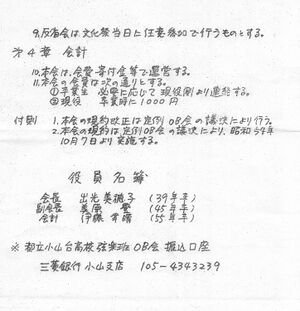 9.反省会は文化祭当日に任意参加で行うものとする。
第4章 会計
10.本会は、会費・寄付金等で運営する。
11.本会の会費は次の通りとする。
①卒業生 必要に応じて現役側より連絡する。
②現役 卒業時に1000円
付則 1.本会の規約改正は定例OB会の議決により行う。
2.本会の規約は定例OB会の議決により、昭和59年
10月7日より実施する。
役員名簿
会長 出光美穂子 (39年卒)
副会長 (45年卒)
会計 伊藤 (55年卒)
※都立小山台高校弦楽班OB会 振込口座
三菱銀行小山支店 105-4343239